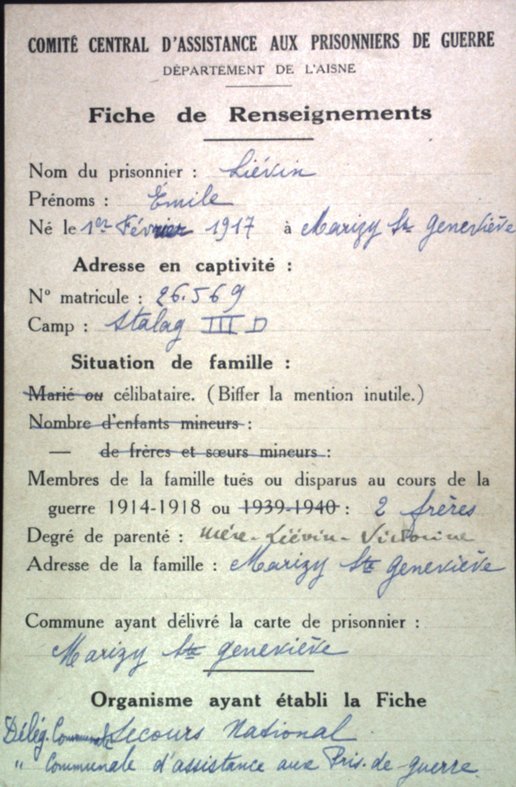 COMITÉ CENTRAL D'ASSISTANCE AUX PRISONNIERS DE GUERRE
DÉPARTEMENT DE L'AISNE
Fiche de Renseignements
Nom du prisonnier : Liévin
Prénoms : Émile
Né le 1er Février 1917 à Marizy Ste Geneviève
Adresse en captivité :
N° matricule : 26.569
Camp : Stalag III D
Situation de famille :
Marié ou célibataire. (Biffer la mention inutile.)
Nombre d'enfants mineurs :
— de frères et sœurs mineurs :
Membres de la famille tués ou disparus au cours de la
guerre 1914-1918 ou 1939-1940 : 2 frères
Degré de parenté : mère - Liévin - Victorine
Adresse de la famille : Marizy Ste Geneviève
Commune ayant délivré la carte de prisonnier :
Marizy Ste Geneviève
Organisme ayant établi la Fiche
Délég. Communale Secours National
" Communale d'assistance aux Pris. de guerre